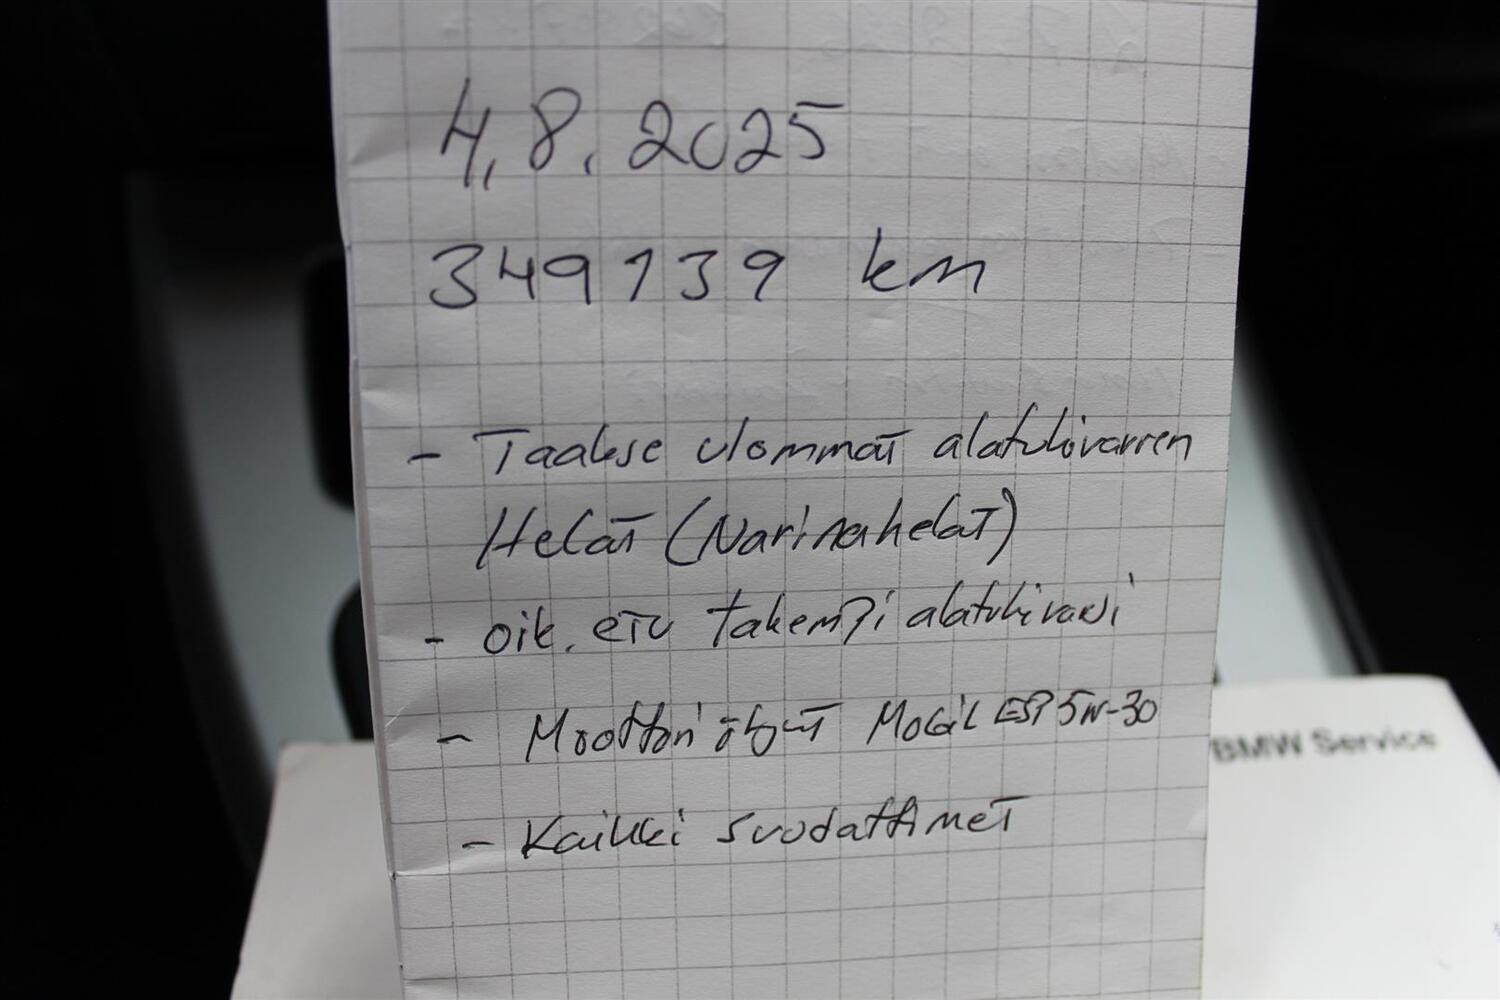 4.8.2025
349139 km
- Taakse ulommat alatukivarren
Helat (Narinahelat)
- oik. etu takempi alatukivarsi
- Moottori öljyt Mobil ESP 5W-30
- Kaikki suodattimet
BMW Service